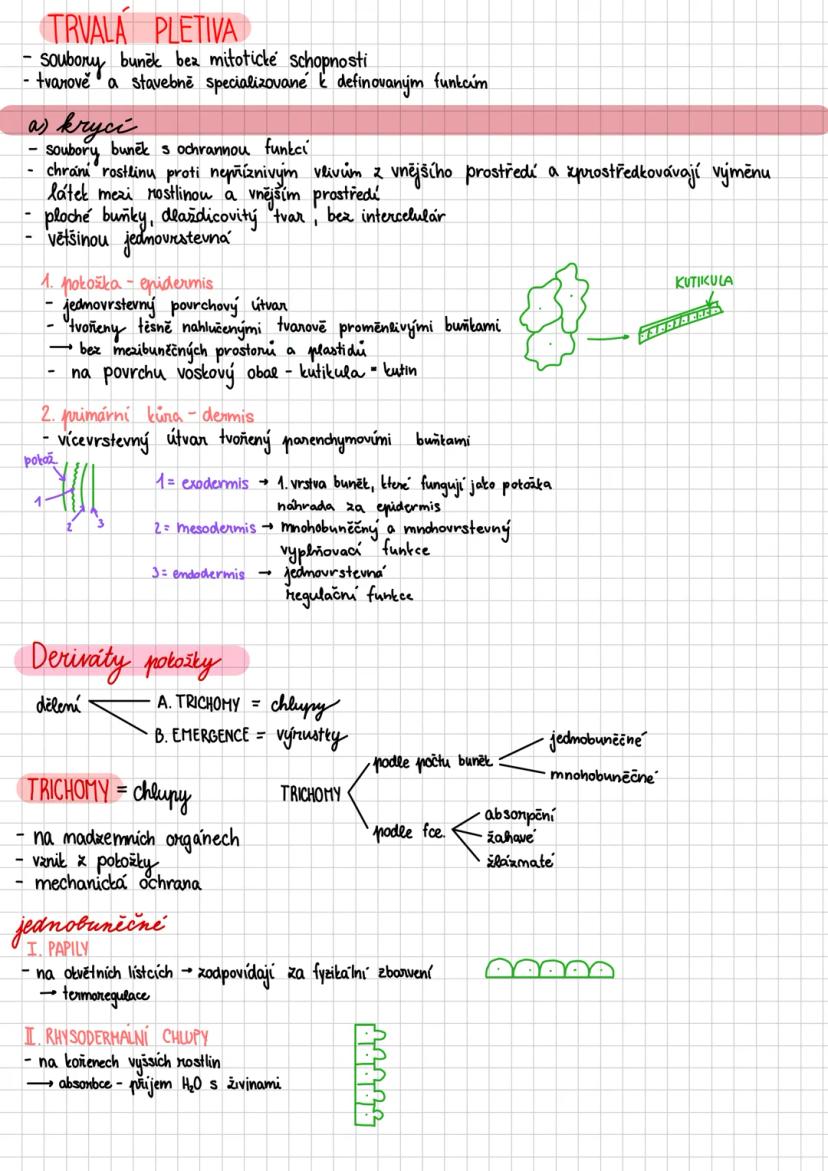 TRVALÁ PLETIVA
- soubory buněk bez mitotické schopnosti
- tvarově a stavebně specializované k definovaným funkcím
a) krycí
- soubory buněk s ochrannou funkcí
- chrání rostlinu proti nepříznivým vlivům z vnějšího prostředí a zprostředkovávají výměnu
látek mezi rostlinou a vnějším prostředí
- ploché buňky, dlaždicovitý tvar, bez intercelulár
- většinou jednovrstevná
1. pokožka - epidermis
- jednovrstevný povrchový útvar
- tvořeny těsně nahlučenými tvarově proměnlivými buňkami
→ bez mezibuněčných prostorů a plastidů
- na povrchu voskový obal - kutikula = kutin
KUTIKULA
2. primární kůra - dermis
- vícevrstevný útvar tvořený parenchymovími buňkami
pokož
1
2
3
1 = exodermis → 1. vrstva buněk, které fungují jako pokožka
náhrada za epidermis
2 = mesodermis → mnohobuněčný a mnohovrstevný
vyplňovací funkce
3 = endodermis → jednovrstevná
regulační funkce
Deriváty pokožky
dělení
A. TRICHOMY = chlupy
B. EMERGENCE = výrustky
TRICHOMY = chlupy
- na nadzemních orgánech
- vznik z pokožky
- mechanická ochrana
TRICHOMY
podle počtu buněk
jednobuněčné
mnohobuněčné
podle fce.
absorpční
žahavé
žlázmaté
jednobuněčné
I. PAPILY
- na okvětních lístcích → zodpovídají za fyzikální zbarvení
→ termoregulace
II. RHYSODERMÁLNÍ CHLUPY
- na kořenech vyšších rostlin
→ absorbce - příjem H₂O s živinami